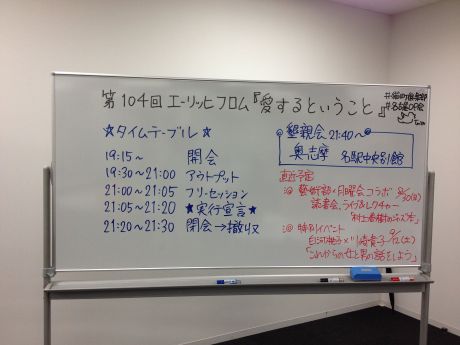 第104回 エーリッヒフロム『愛するということ』
#猫町倶楽部
#名古屋OP会
☆タイムテーブル☆
19:15〜 開会
19:30〜21:00 アウトプット
21:00〜21:05 フリーセッション
21:05〜21:20 ★実行宣言★
21:20〜21:30 閉会→撤収
懇親会 21:40〜
奥志摩 名駅中央別館
直近予定
藝術部×月曜会コラボ 8/30(日)
読書会、ライブ&レクチャー
「村上春樹の
特別イベント 9/12(土)
白河桃子×川崎貴子
「これからの女と男の話をしよう」